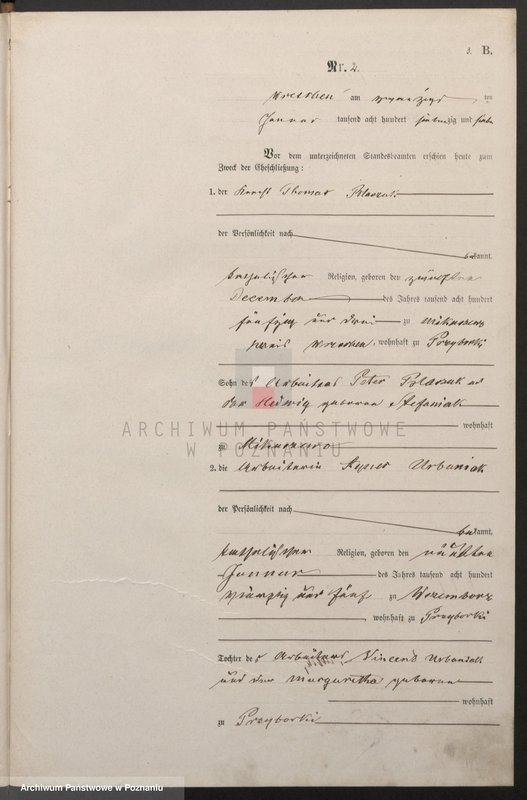 3. B.
Nr. 2.
Wreschen am zwanzigs ten
Januar tausend acht hundert siebenzig und
Vor dem unterzeichneten Standesbeamten erschien heute zum
Zweck der Eheschließung:
1. der Knecht Thomas
der Persönlichkeit nach
bekannt,
katholischer Religion, geboren den zwölften
December des Jahres tausend acht hundert
fünfzig und drei zu
Kreis Wreschen, wohnhaft zu Przyborki
Sohn des Arbeiters Peter
der Hedwig geborne Stefaniak
wohnhaft
zu
2. die Arbeiterin Agnes Urbaniak
der Persönlichkeit nach
bekannt,
katholischer Religion, geboren den
Januar des Jahres tausend acht hundert
und fünf zu
wohnhaft zu Przyborki
Tochter des Arbeiters Vincent Urbaniak
und der Margaretha geborne
wohnhaft
zu Przyborki
ARCHIWUM PAŃSTWOWE
W POZNANIU
Archiwum Państwowe w Poznaniu